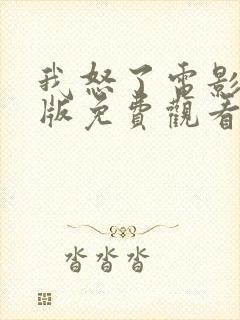 我怒了電影
版免費觀看
沓沓沓